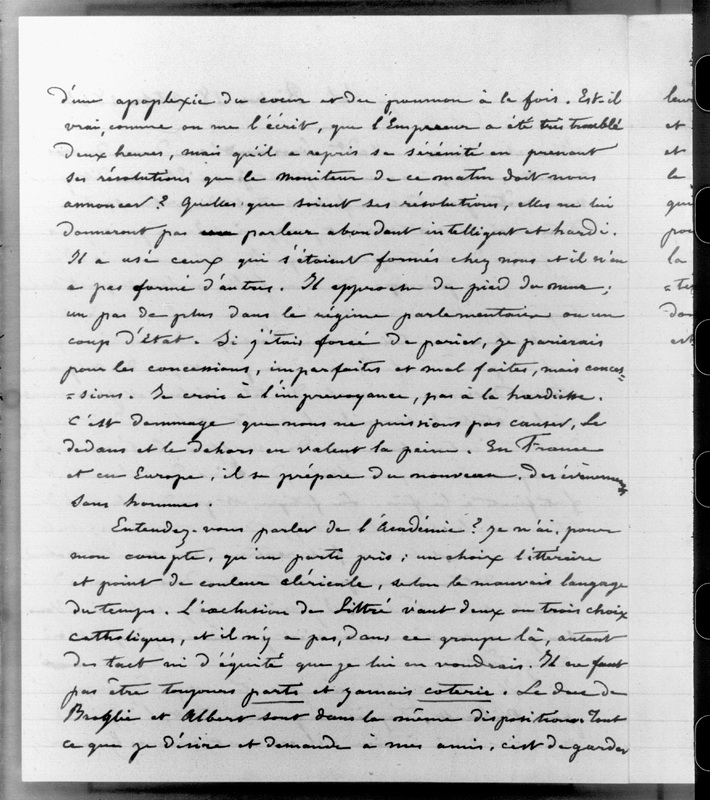 d'une apoplexie du coeur et du poumon à la fois. Est-il
vrai, comme on me l'écrit, que l'Empereur a été très troublé
deux heures, mais qu'il a repris sa sérénité en prenant
ses résolutions que le Moniteur de ce matin doit nous
annoncer? Quelles que soient ses résolutions, elles ne lui
donneront pas parleur abondant intelligent et hardi.
Il a usé ceux qui s'étaient formés chez nous et il n'en
a pas formé d'autres. Il approche du pied du mur;
un pas de plus dans le régime parlementaire ou un
coup d'état. Si j'étais forcé de parier, je parierais
pour les concessions, imparfaites et mal faites, mais conces=
=sions. Je crois à l'imprévoyance, pas à la hardiesse.
C'est dommage que nous ne puissions pas causer. Le
dedans et le dehors en valent la peine. En France
et en Europe, il se prépare du nouveau. Des événemens
sans hommes.
Entendez-vous parler de l'Académie? Je n'ai, pour
mon compte, qu'un parti pris; un choix littéraire
et point de couleur cléricale, selon le mauvais langage
du temps. L'exclusion de Littré vaut deux ou trois choix
catholiques, et il n'y a pas, dans ce groupe là, autant
de tact ni d'équité que je lui en voudrais. Il ne faut
pas être toujours parti et jamais coterie. Le duc de
Broglie et Albert sont dans la même disposition. Tout
ce que je désire et demande à mes amis, c'est de garder
leur
et
et
la
qui
pou
la